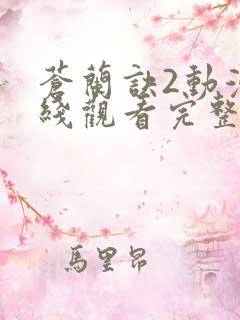 蒼蘭訣2動漫
綫觀看完整
馬里昂